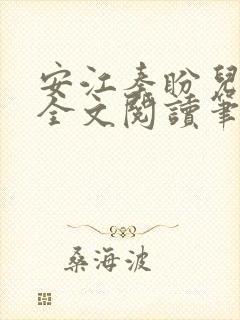 安江秦盼兒
全文閱讀筆
桑海波